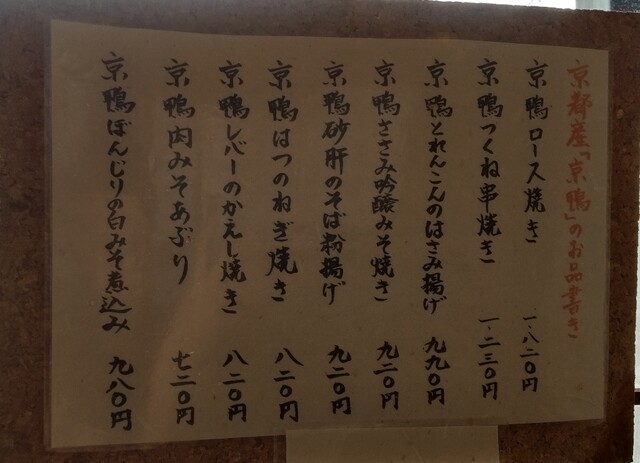 京都産「京鴨」のお品書き
京鴨ロース焼き 一・八二〇円
京鴨つくね串焼き 一・二三〇円
京鴨とれんこんのはさみ揚げ 九九〇円
京鴨ささみ吟醸みそ焼き 九二〇円
京鴨砂肝のそば粉揚げ 九二〇円
京鴨はつのねぎ焼き 八二〇円
京鴨レバーのかえし焼き 八二〇円
京鴨肉みそあぶり 七二〇円
京鴨ぼんじりの白みそ煮込み 九八〇円